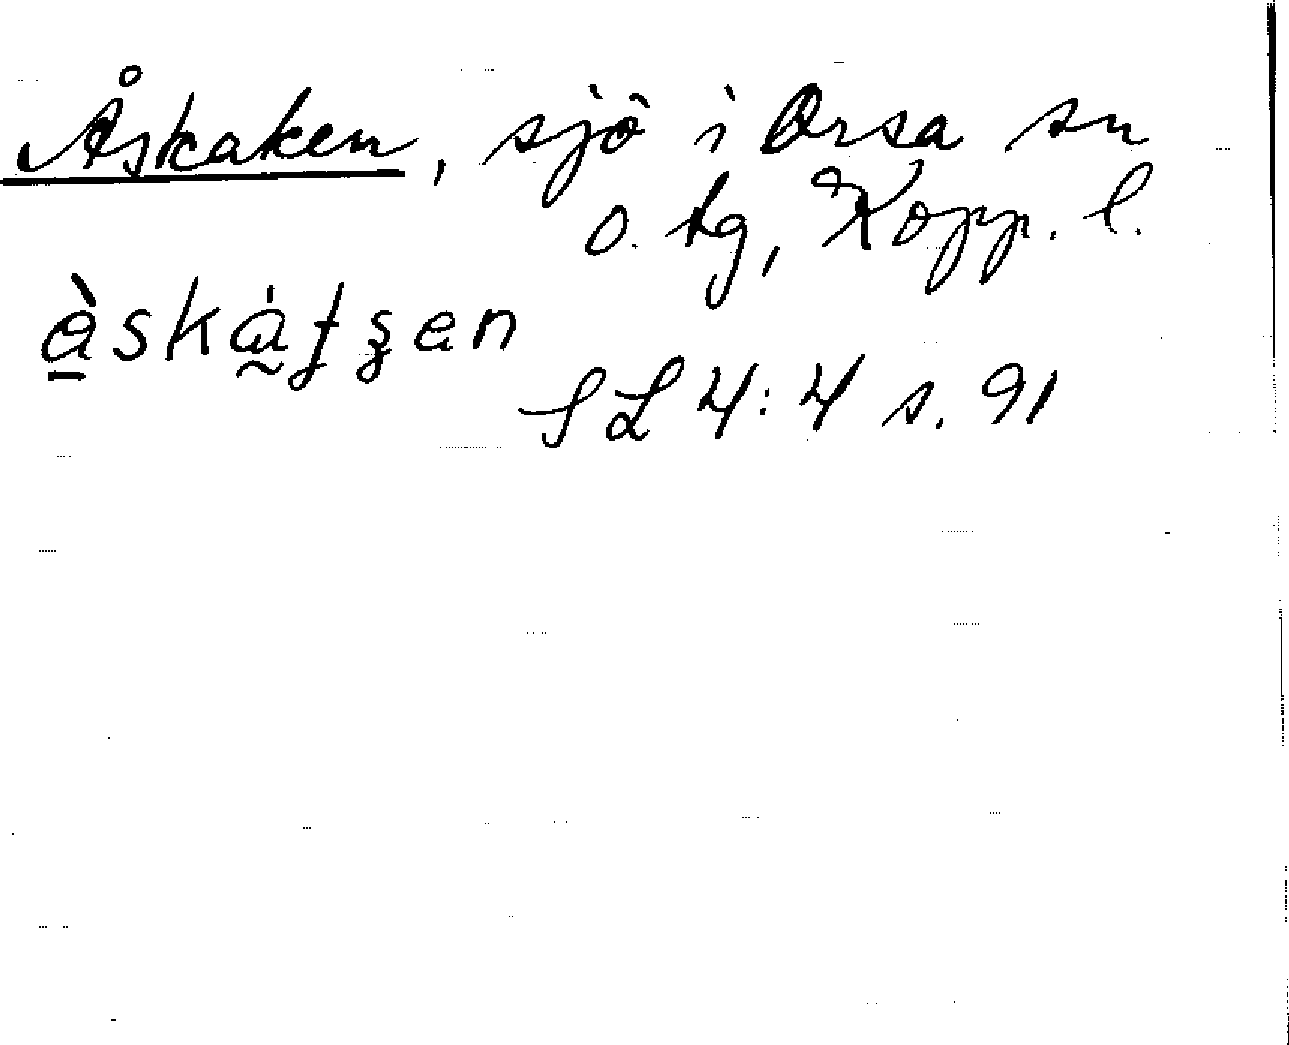 Åskaken, sjö i Orsa sn
o. tg, Kopp. l.
àskátsen
SL 4:4 s. 91